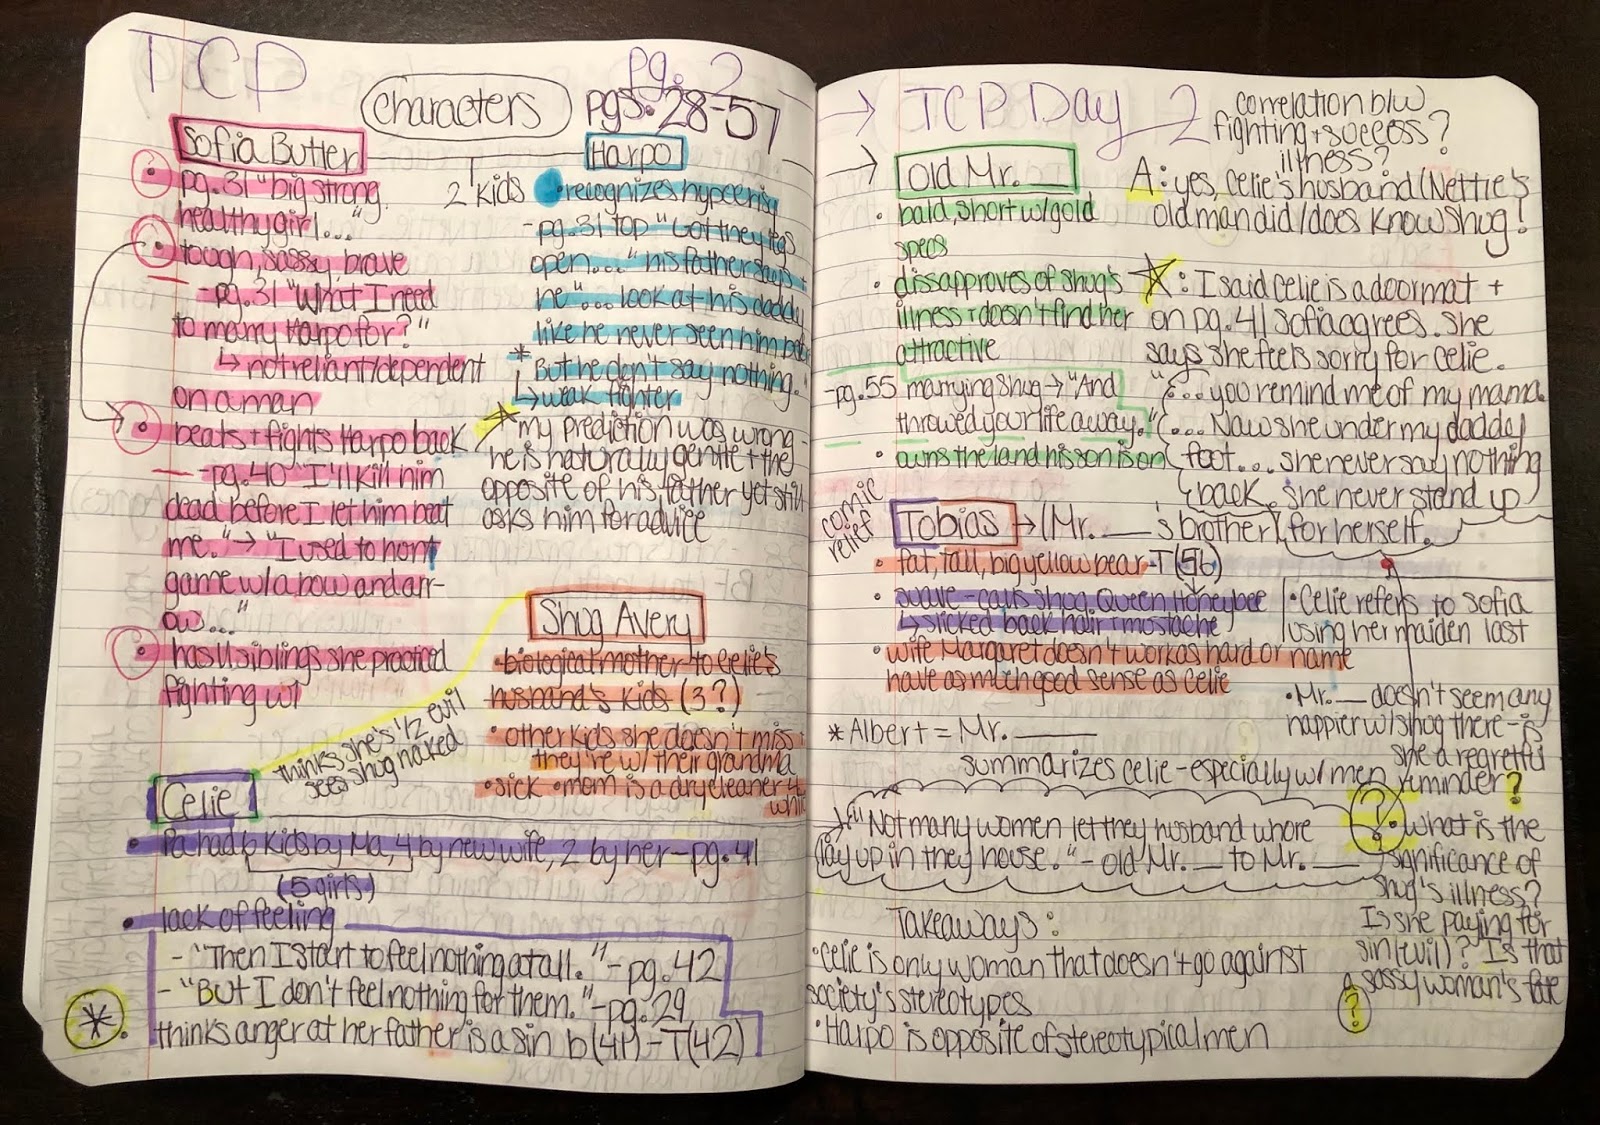 TCP
pg. 2
characters
pgs. 28-57
Sofia Butler
2 kids
• pg. 31 "big strong
healthy girl..."
• tough, sassy, brave
- pg. 31 "What I need
to marry Harpo for?"
↳ not reliant/dependent
on a man
• beats + fights Harpo back
- pg. 40 "I'll kill him
dead before I let him beat
me." → "I used to hont
game w/a bow and arr-
ow..."
• has 11 siblings she practiced
fighting w/
Harpo
• recognizes
- pg. 31 top "Got they legs
open..." his father says +
he "...look at his daddy
like he never seen him
* But he don't say nothing."
↳ weak fighter
* my prediction was wrong -
he is naturally gentle + the
opposite of his father yet still
asks him for advice
Shug Avery
• biological mother to Celie's
husband's kids (3?)
• other kids she doesn't miss
they're w/ their grandma
• sick • mom is a drycleaner 4
thinks she's 1/2 evil
sees shug naked
Celie
• Pa had 6 kids by Ma, 4 by new wife, 2 by her - pg. 41
(5 girls)
• lack of feeling
- "Then I start to feel nothing at all." - pg. 42
- "But I don't feel nothing for them." - pg. 29
*. thinks anger at her father is a sin b(41) - T(42)
→ TCP Day 2
correlation b/w
fighting + success?
illness?
→ old Mr.
• bald, short w/gold
specs
• dissapproves of shug's
illness + doesn't find her
attractive
- pg. 55 marrying shug → "And
throwed your life away."
• owns the land his son is on
A: yes, Celie's husband (Nettie's
old man did/does know shug!
☆: I said Celie is a doormat +
on pg. 41 Sofia agrees. She
says she feels sorry for Celie.
"... you remind me of my mama.
... Now she under my daddy
foot... she never say nothing
back. she never stand up
for herself.
comic
relief
Tobias → (Mr. ___'s brother)
• fat, tall, big yellow bear - T (56)
• suave - calls shug Queen Honeybee
↳ slicked back hair + mustache
• wife Margaret doesn't work as hard or
have as much good sense as Celie
• Celie refers to Sofia
using her maiden last
name
* Albert = Mr. ___
• Mr. ___ doesn't seem any
happier w/shug there - is
she a regretful
reminder?
summarizes celie - especially w/ men
→ "Not many women let they husband whore
lay up in they house." - old Mr. ___ to Mr. ___
?
• What is the
significance of
shug's illness?
Is she paying for
sin (evil)? Is that
a sassy woman's fate
?
Takeaways:
• Celie is only woman that doesn't go against
society's stereotypes
• Harpo is opposite of stereotypical men